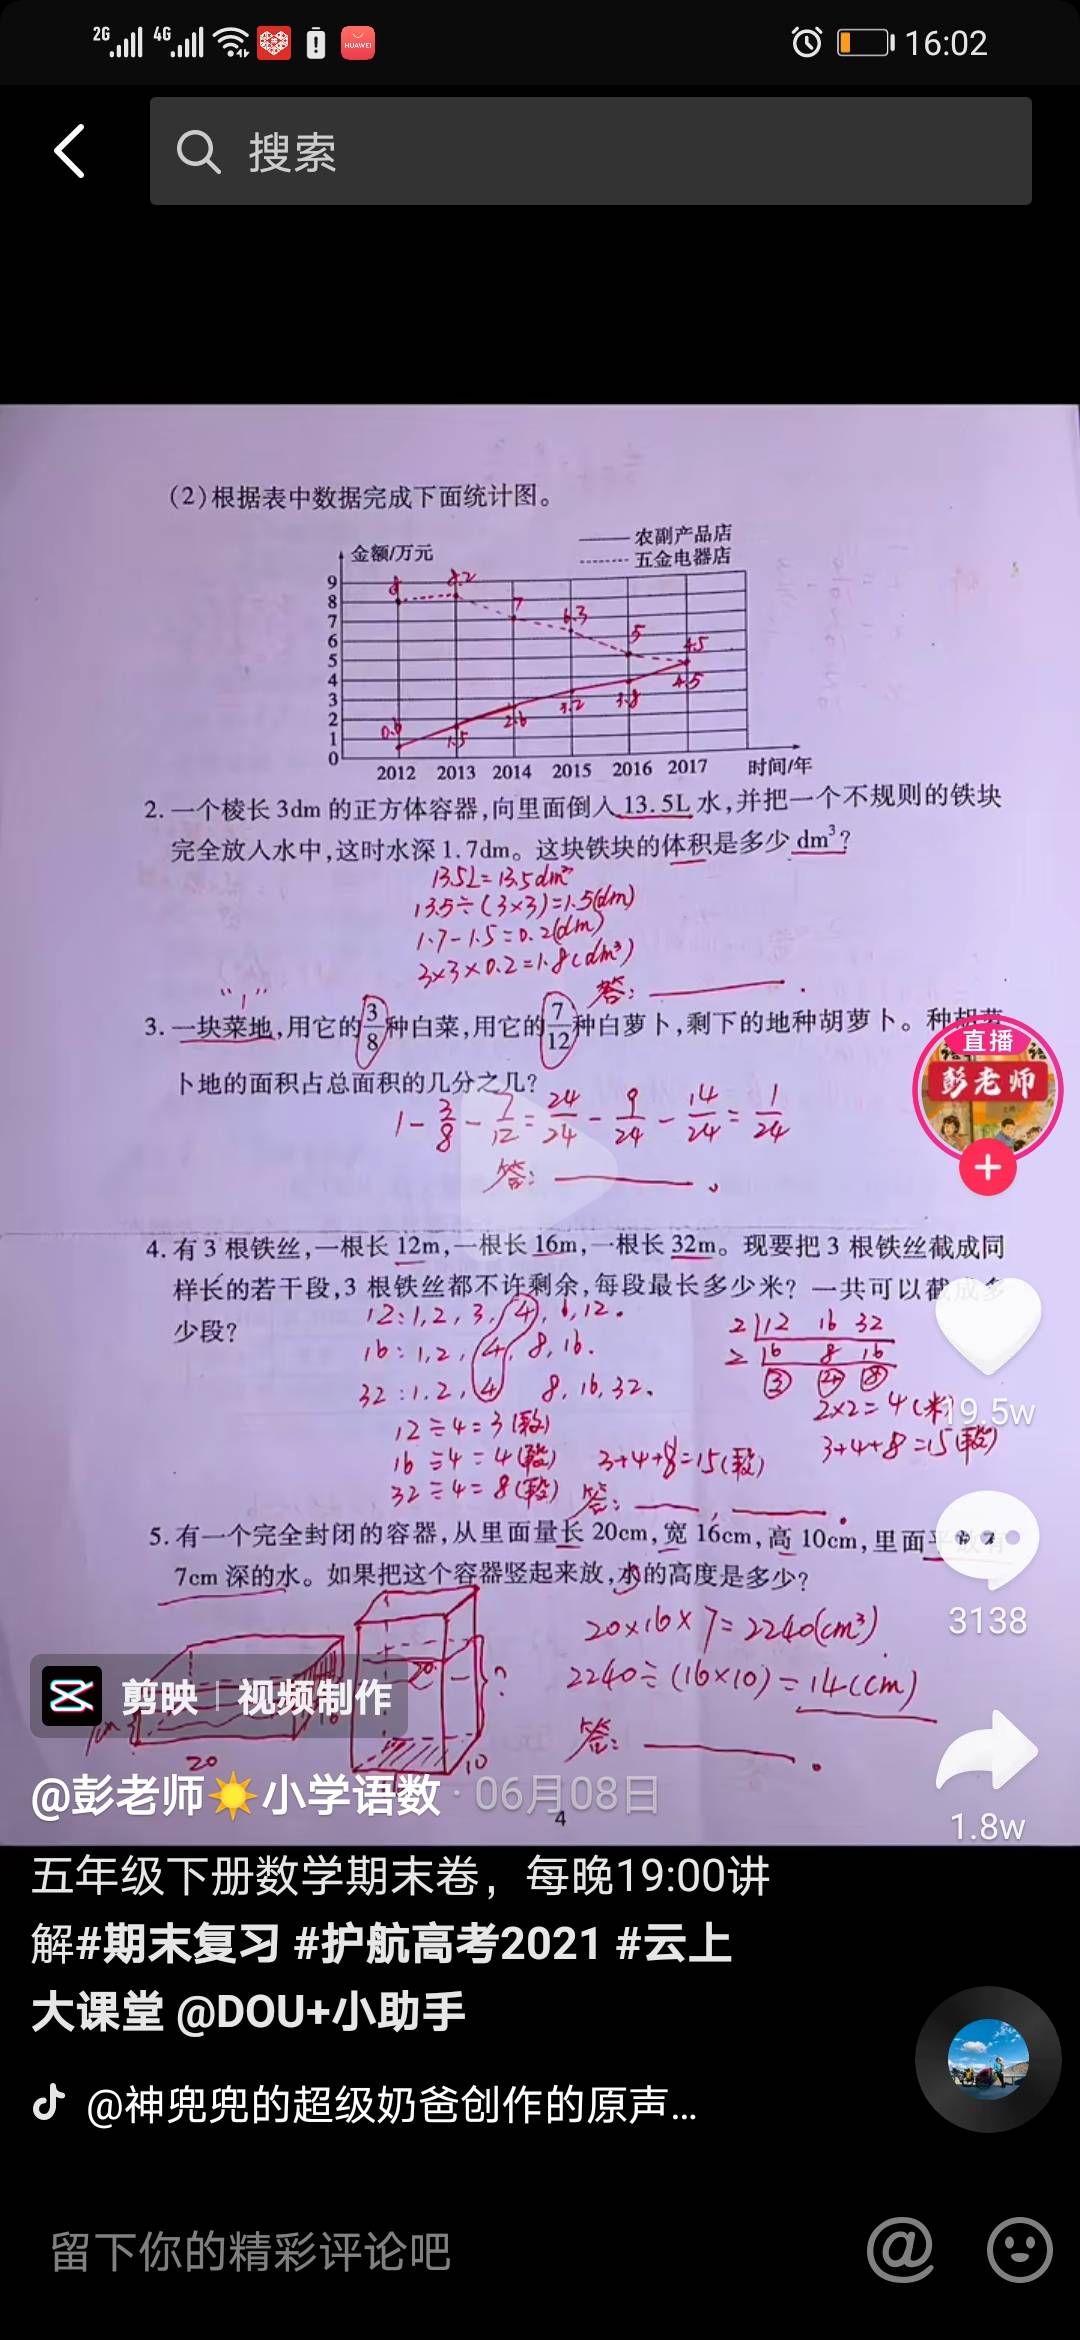 2G 4G HUAWEI 16:02
搜索
(2)根据表中数据完成下面统计图。
金额/万元
农副产品店
五金电器店
9
8
7
6
5
4
3
2
1
0
8 8.2 7 6.3 5 4.5
0.6 1.5 2.6 3.2 3.8 4.5
2012 2013 2014 2015 2016 2017 时间/年
2.一个棱长3dm的正方体容器,向里面倒入13.5L水,并把一个不规则的铁块
完全放入水中,这时水深1.7dm。这块铁块的体积是多少dm³?
13.5L=13.5dm³
13.5÷(3×3)=1.5(dm)
1.7-1.5=0.2(dm)
3×3×0.2=1.8(dm³)
答:
"1"
3.一块菜地,用它的3/8种白菜,用它的7/12种白萝卜,剩下的地种胡萝卜。种胡萝
卜地的面积占总面积的几分之几?
1-3/8-7/12=24/24-9/24-14/24=1/24
答: 。
4.有3根铁丝,一根长12m,一根长16m,一根长32m。现要把3根铁丝截成同
样长的若干段,3根铁丝都不许剩余,每段最长多少米?一共可以截成多
少段?
12:1,2,3,4,6,12.
16:1,2,4,8,16.
32:1.2,4 8,16,32.
2 12 16 32
2 8 16
3 4 8
2×2=4(米)
3+4+8=15(段)
12÷4=3(段)
16÷4=4(段) 3+4+8=15(段)
32÷4=8(段) 答: ,
5.有一个完全封闭的容器,从里面量长20cm,宽16cm,高10cm,里面平放有
7cm深的水。如果把这个容器竖起来放,水的高度是多少?
20×16×7=2240(cm³)
2240÷(16×10)=14(cm)
答: 。
20 10
4
直播
彭老师
19.5w
3138
1.8w
剪映 视频制作
@彭老师☀️小学语数 · 06月08日
五年级下册数学期末卷，每晚19:00讲
解#期末复习 #护航高考2021 #云上
大课堂 @DOU+小助手
@神兜兜的超级奶爸创作的原声...
留下你的精彩评论吧